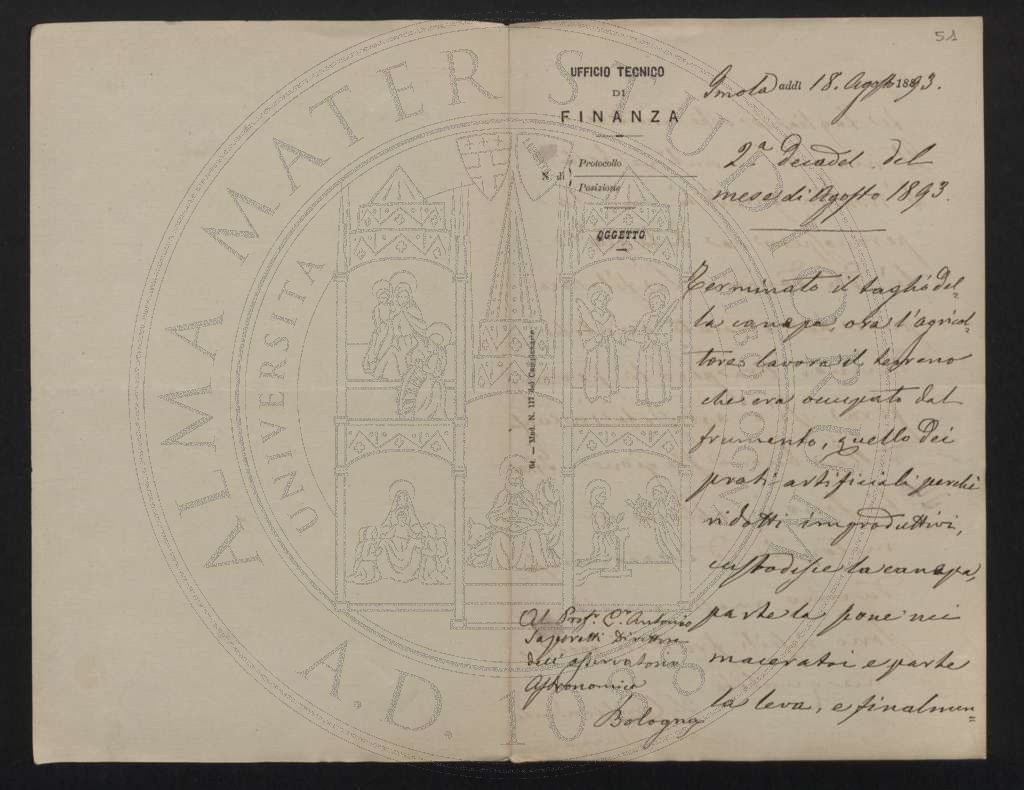 51
UFFICIO TECNICO
DI
FINANZA
N. di
Protocollo
Posizione
OGGETTO
Imola addì 18. Agosto 1893.
2ª decade del
mese di Agosto 1893.
Terminato il taglio del=
la canapa, ora l'agricol=
tore lavora il terreno
che era occupato dal
frumento, quello dei
prati artificiali perchè
ridotti improduttivi,
custodisce la canapa,
parte la pone nei
maceratoi e parte
la leva, e finalmen=
Al Prof. Cr. Antonio
Saporetti Direttore
dell'osservatorio
Astronomico
Bologna
64 — Mod. N. 117 del
ALMA MATER STUDIORUM
A.D. 1088
UNIVERSITA
DI BOLOGNA